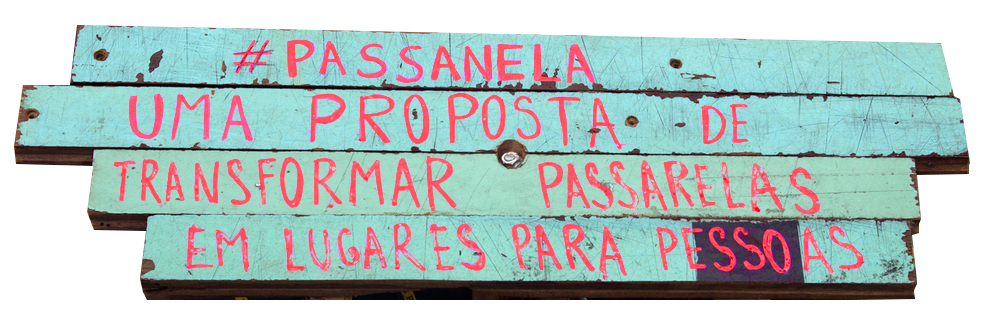 #PASSANELA
UMA PROPOSTA DE
TRANSFORMAR PASSARELAS
EM LUGARES PARA PESSOAS